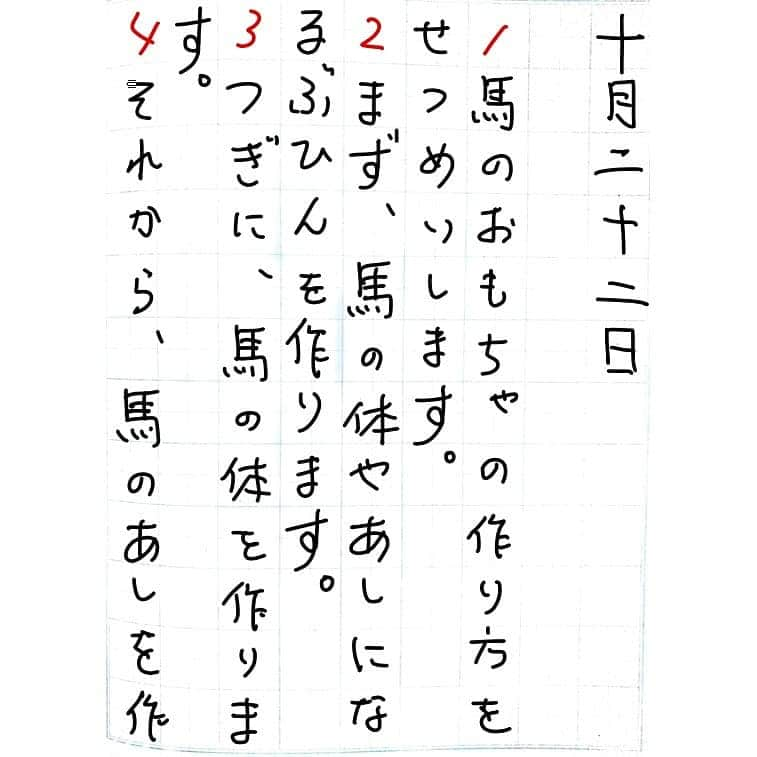 十月二十二日
1馬のおもちゃの作り方を
せつめいします。
2まず、馬の体やあしにな
るぶひんを作ります。
3つぎに、馬の体を作りま
す。
4それから、馬のあしを作